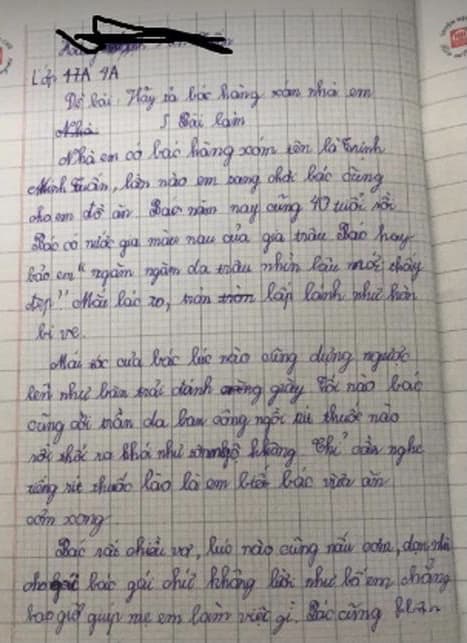 Lớp 17A 4A
Đề bài: Hãy tả bác hàng xóm nhà em
Nhà
Bài làm
Nhà em có bác hàng xóm tên là Trịnh
Minh Tuấn, lần nào em sang chơi bác cũng
cho em đồ ăn. Bác năm nay cũng 40 tuổi rồi
Bác có nước gia màu nau của gia trâu Bac hay
bảo em "ngăm ngăm da trâu nhìn lâu mới thấy
đẹp" Mắt bác to, tròn lấp lánh như hòn
bi ve.
Mái tóc của bác lúc nào cũng dựng ngược
lên như bàn trải đánh giầy Tối nào bác
cũng cởi trần da ban công ngồi rít thuốc nào
rồi thổi ra khói như không. Chỉ cần nghe
tiếng rít thuốc lào là em biết bác vừa ăn
cơm xong.
Bác rất chiều vợ, lúc nào cũng nấu cơm, dọn nhà
cho bác gái chứ không lười như bố em chẳng
bao giờ giup mẹ em làm việc gì. Bác cũng